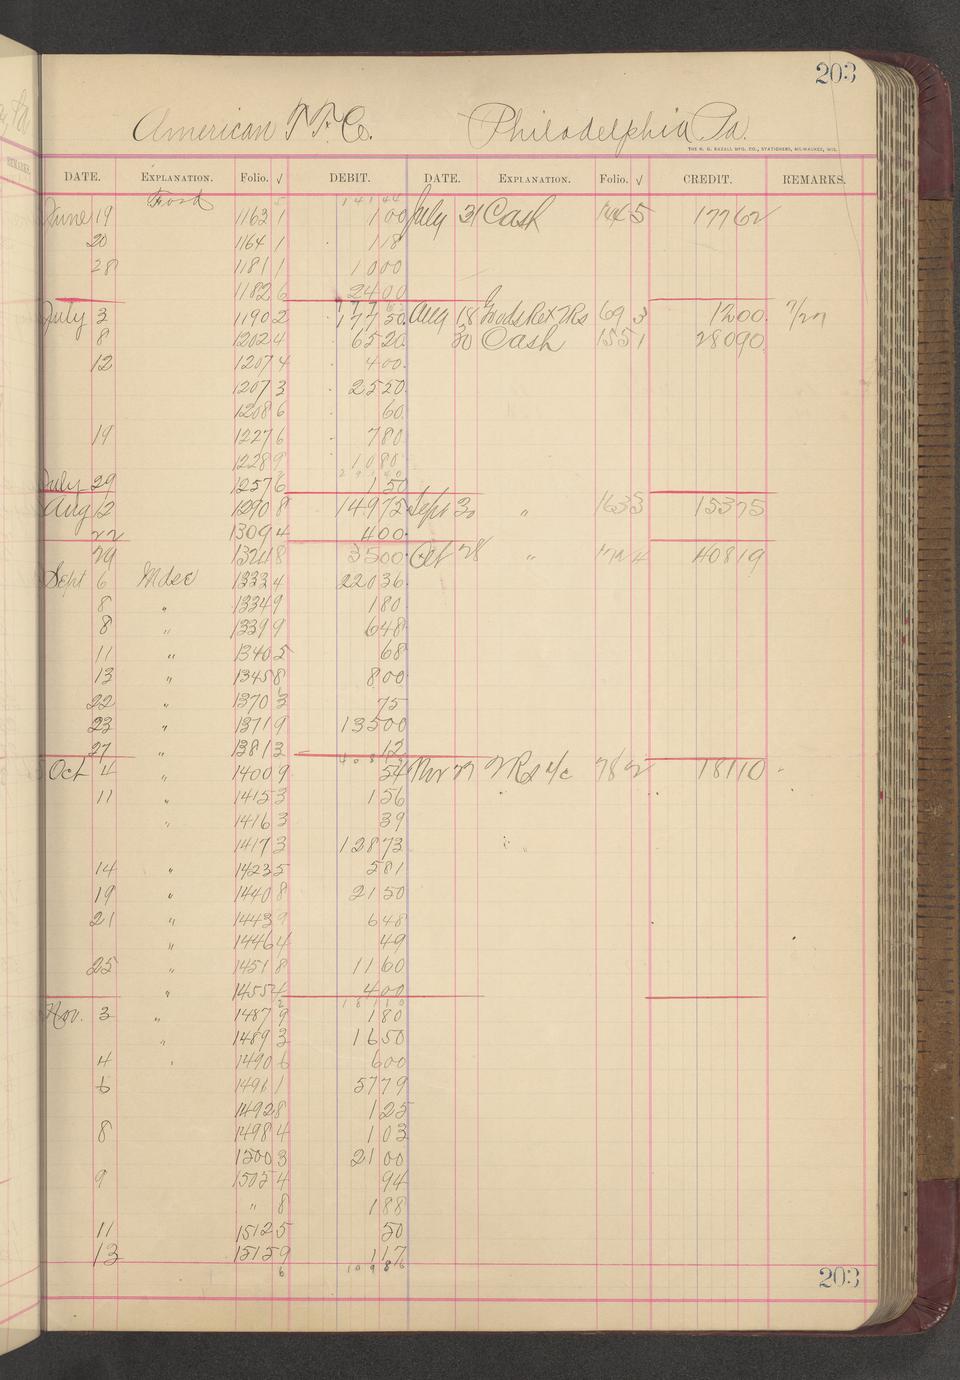 203
American T. T. Co. Philadelphia Pa.
THE H. G. RAZALL MFG. CO., STATIONERS, MILWAUKEE, WIS.
DATE. EXPLANATION. Folio. √ DEBIT. DATE. EXPLANATION. Folio. √ CREDIT. REMARKS.
June 19 1163 1 1 00 July 31 Cash 1445 177 62
20 1164 1 1 18
28 1181 1 10 00
1182 6 24 00
July 3 1190 2 177 50 Aug 18 69 3 12 00
8 1202 4 65 20 30 Cash 1551 280 90
12 1207 4 4 00
1207 3 25 50
1208 6 60
19 1227 6 7 80
1228 9 10 80
July 29 1257 6 1 50
Aug 12 1290 8 149 75 Sept 30 " 1635 153 75
22 1309 4 4 00
29 1324 8 35 00 Oct 28 " 408 19
Sept 6 Mdse 1333 4 220 36
8 " 1334 9 1 80
8 " 1339 9 6 48
11 " 1340 5 68
13 " 1345 8 8 00
22 " 1370 3 75
23 " 1371 9 135 00
27 " 1381 3 12
Oct 4 " 1400 9 54 Nov 27 78 2 181 10
11 " 1415 3 1 56
" 1416 3 39
1417 3 128 73
14 " 1423 5 5 81
19 " 1440 8 21 50
21 " 1443 9 6 48
" 1446 4 49
25 " 1451 8 11 60
" 1455 4 4 00
Nov. 3 " 1487 9 1 80
" 1489 3 16 50
4 " 1490 6 6 00
6 1491 1 57 79
1492 8 1 25
8 1498 4 1 03
1500 3 21 00
9 1505 4 94
" 8 1 88
11 1512 5 50
13 1515 9 1 17
6 109 86
203